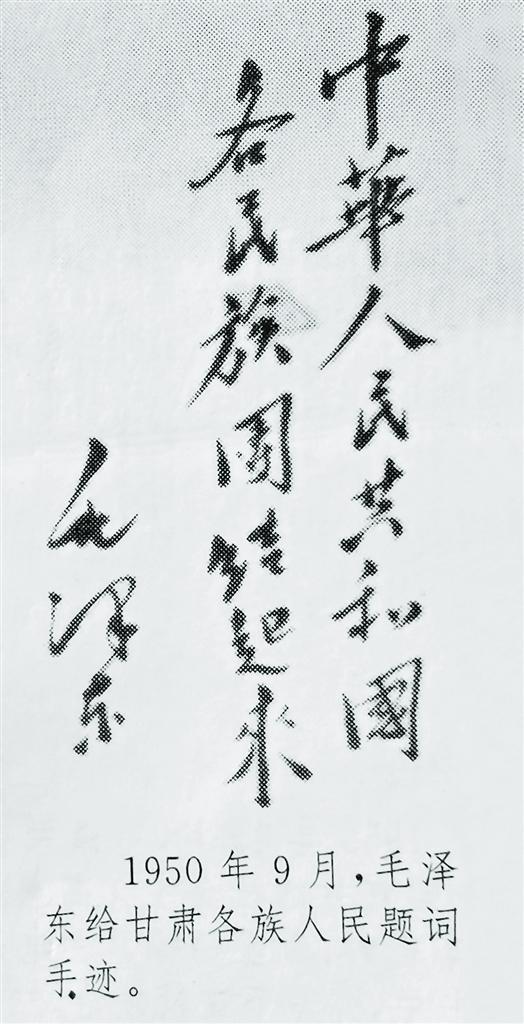 中華人民共和國
各民族團结起來
毛泽东
1950年9月,毛泽
东给甘肃各族人民题词
手迹。